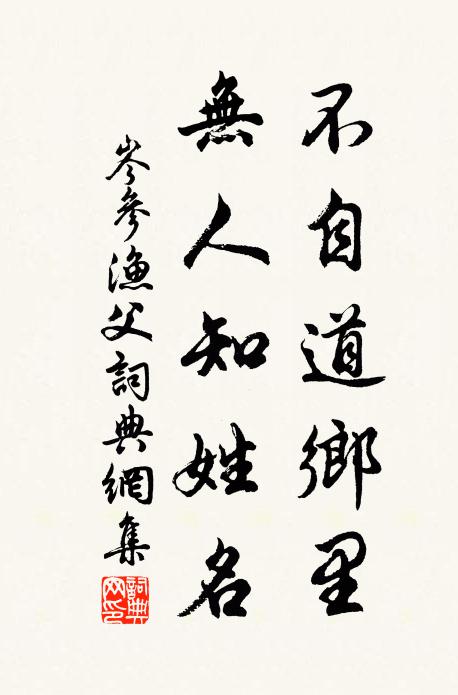 不自道鄉里
無人知姓名
岑參漁父詞典網集
詞典网印